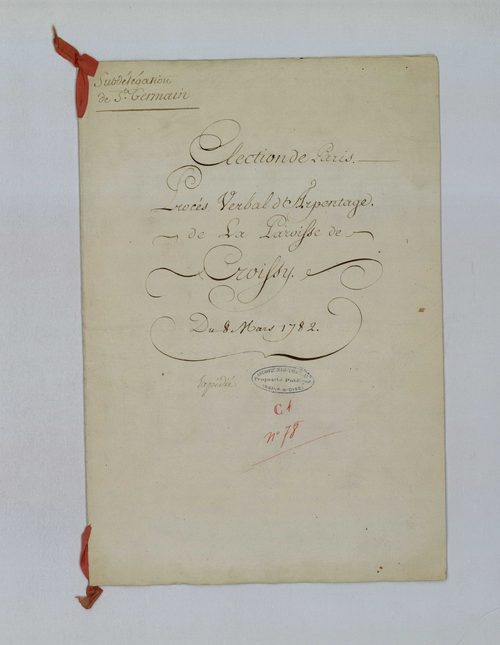 Subdélégation
de St. Germain
Election de Paris.
Procès Verbal d'Arpentage.
de La Paroisse de
Croissy.
Du 8 Mars 1782.
Expédié
Propriété Publique
C1
n° 78